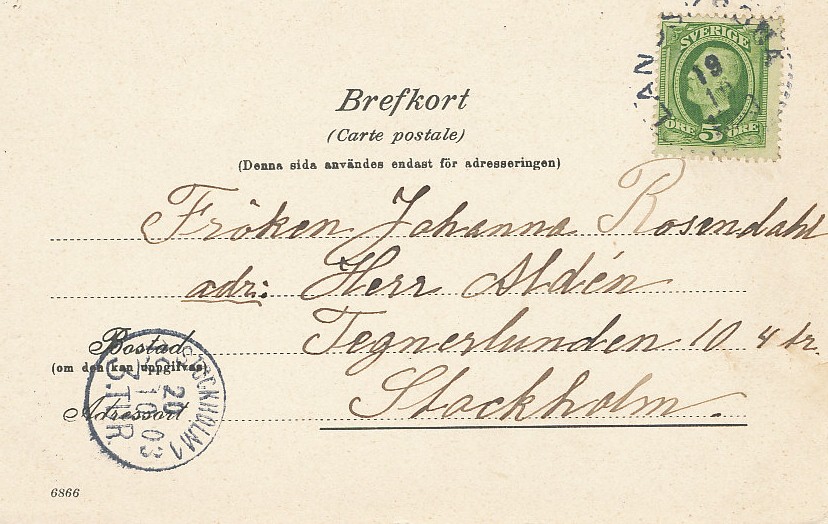 SVERIGE
19
ÖRE 5 ÖRE
Brefkort
(Carte postale)
(Denna sida användes endast för adresseringen)
Fröken Johanna Rosendahl
adr: Herr Aldén
Bostad Tegnerlunden 10 4 tr.
(om den kan uppgifvas)
Adressort Stockholm.
STOCKHOLM 1
20 10 03
3. TUR
6866